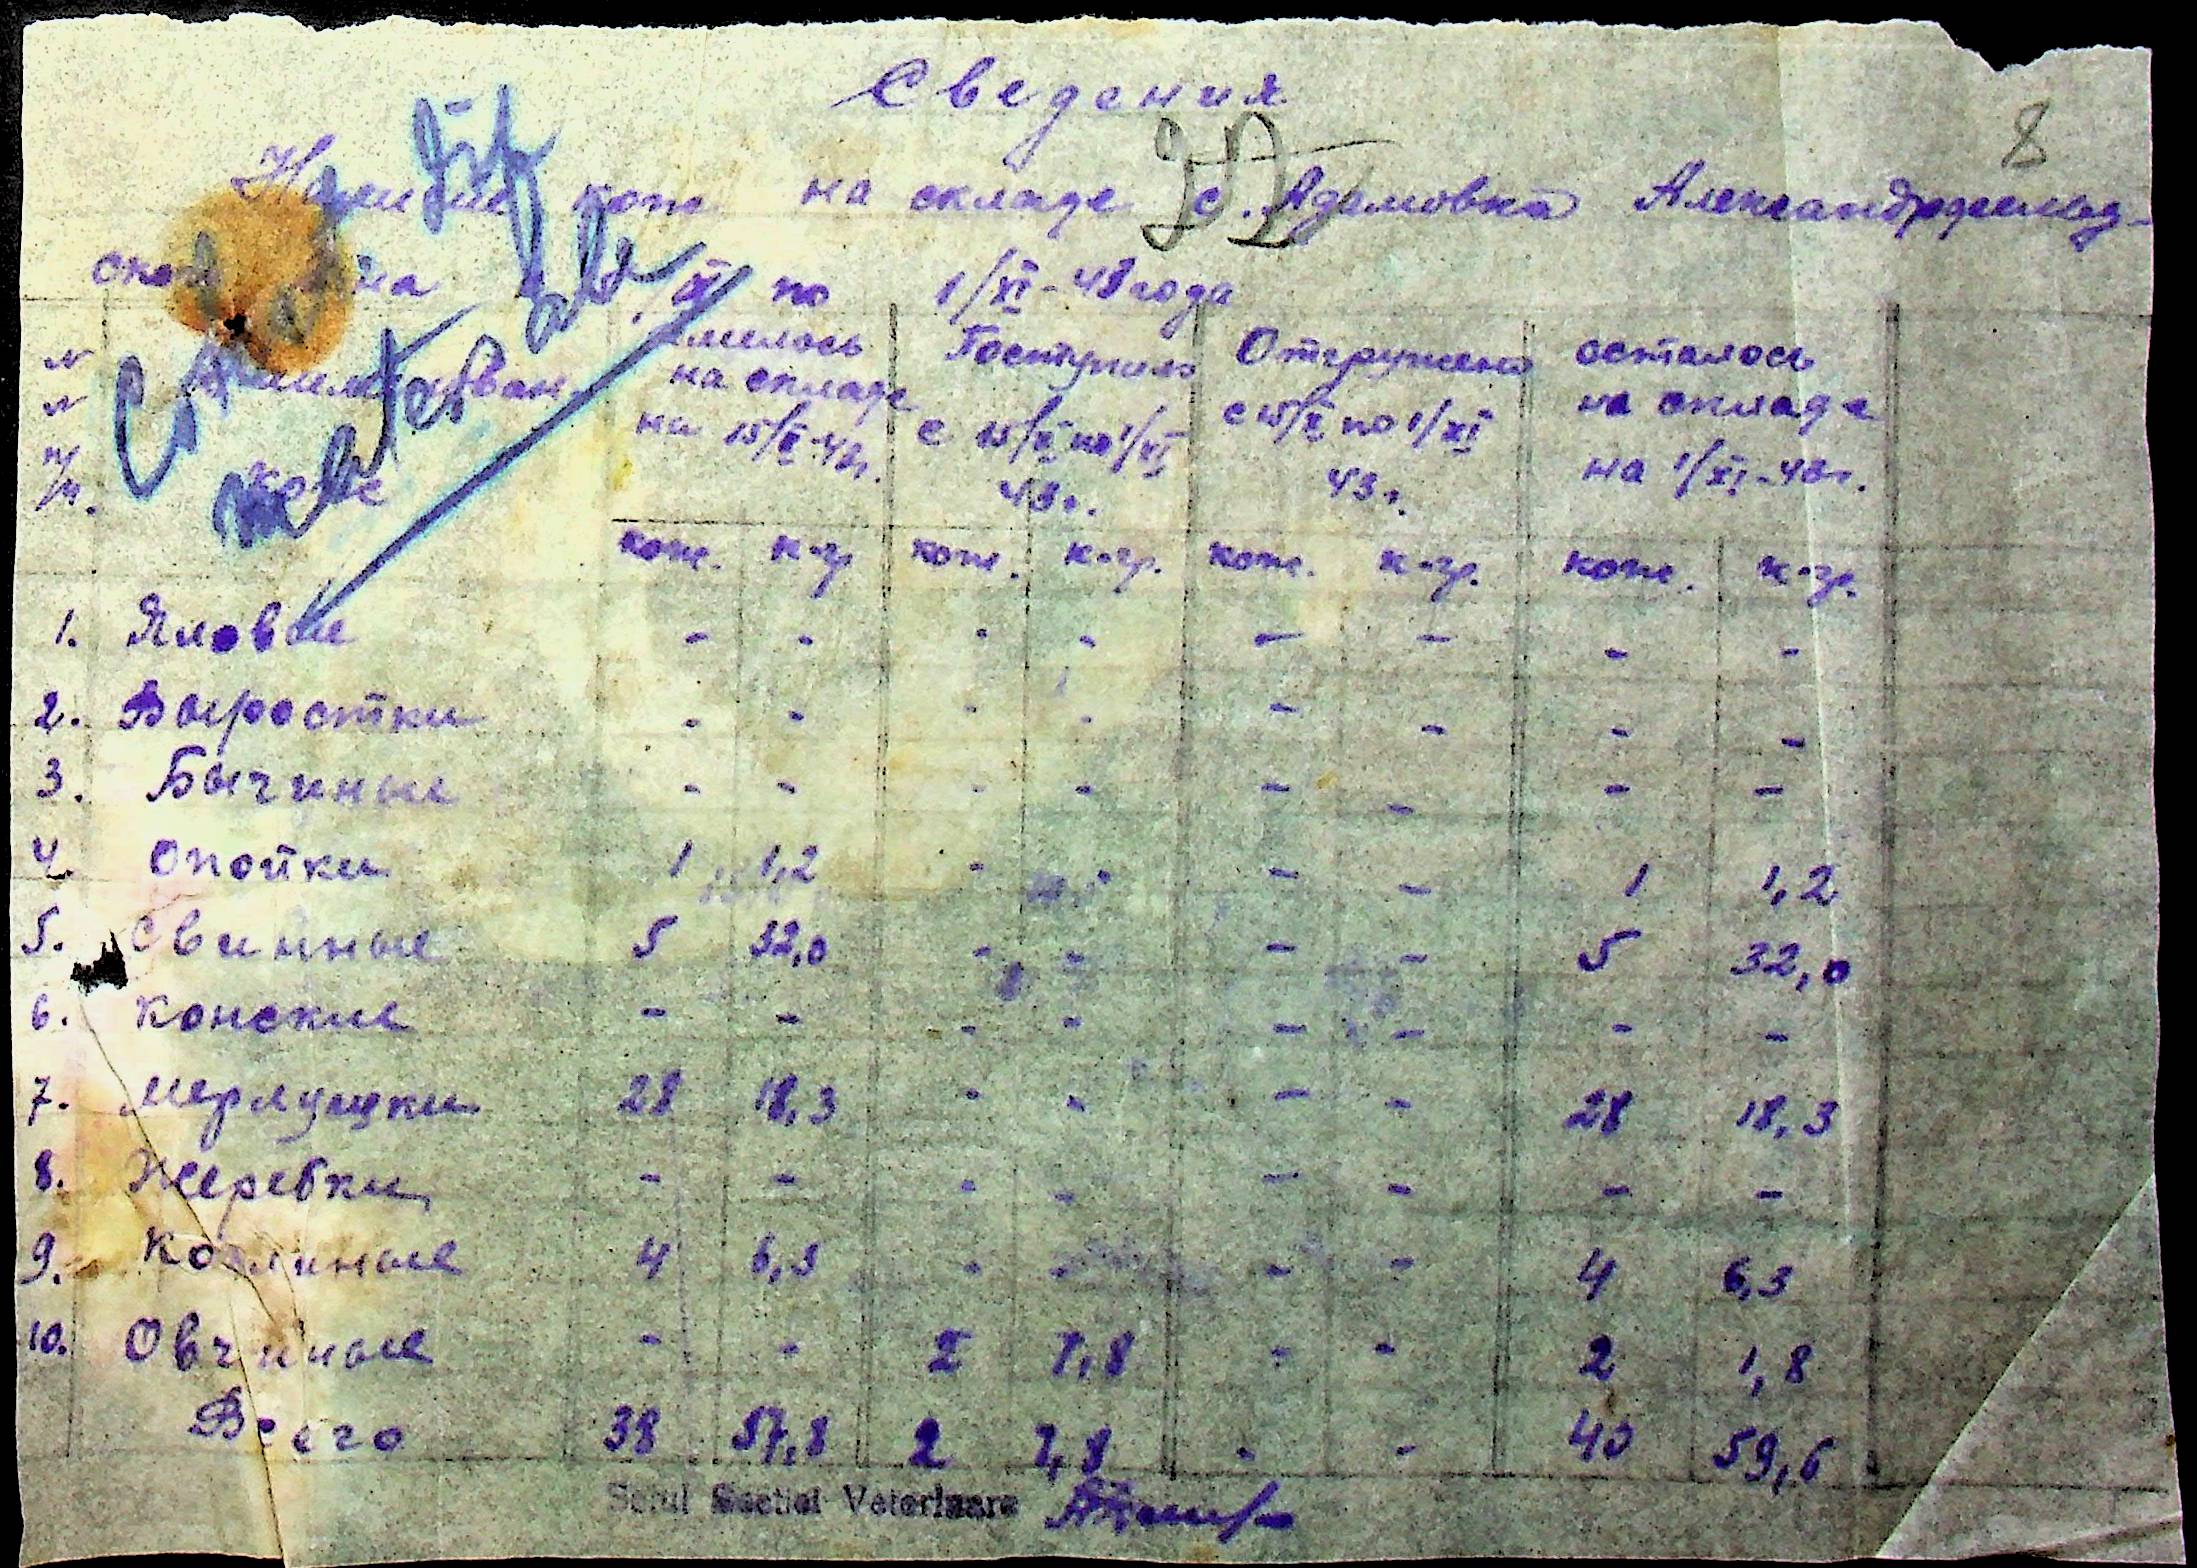 Сведения
8
Наличие кож на складе с. Адамовка Александрфельд-
по 1/XI-43 года
N
N
п/
п.
кож
имелось
на складе
на 15/X-43г.
Поступило
с 15/X по 1/XI
43г.
Отгружено
с 15/X по 1/XI
43г.
осталось
на складе
на 1/XI-43г.
кож. к-гр кож. к-гр. кож. к-гр. кож. к-гр.
1. Яловые - - - - - - - -
2. Выростки - - - - - - - -
3. Бычиные - - - - - - - -
4. Опойки 1 1,2 - - - - 1 1,2
5. Свинные 5 32,0 - - - - 5 32,0
6. Конские - - - - - - - -
7. Мерлушки 28 18,3 - - - - 28 18,3
8. Жеребки - - - - - - - -
9. Козлиные 4 6,3 - - - - 4 6,3
10. Овчиные - - 2 1,8 - - 2 1,8
Всего 38 57,8 2 1,8 - - 40 59,6
Seful Sectiei Veterinare